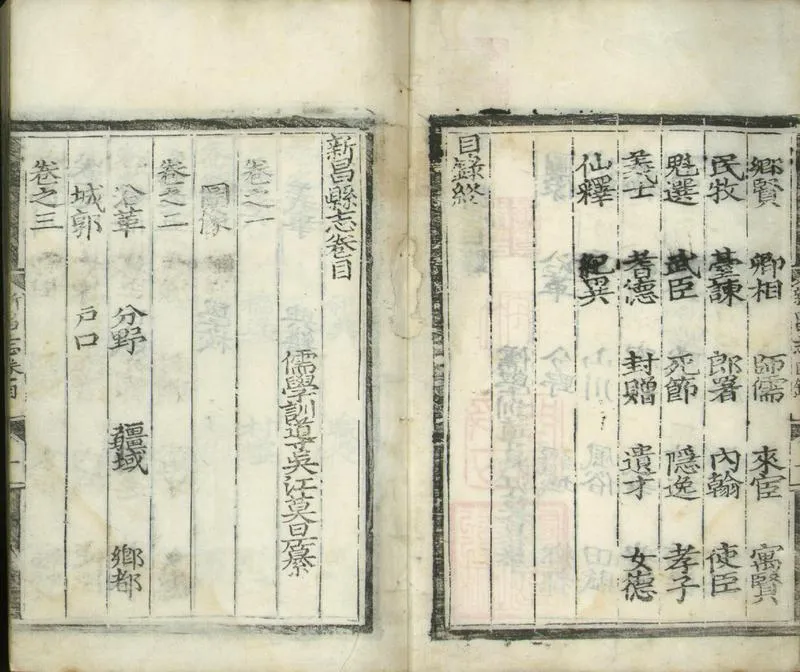 鄉賢 卿相 師儒 來宦 寓賢
民牧 臺諫 郎署 內翰 使臣
魁選 武臣 死節 隱逸 孝子
義士 耆德 封贈 遺才 女德
仙釋 紀異
目錄終
新昌縣志卷目
儒學訓導吳江莫旦纂
卷之一
圖像
卷之二
沿革 分野 疆域 鄉都
城郭 戶口
卷之三